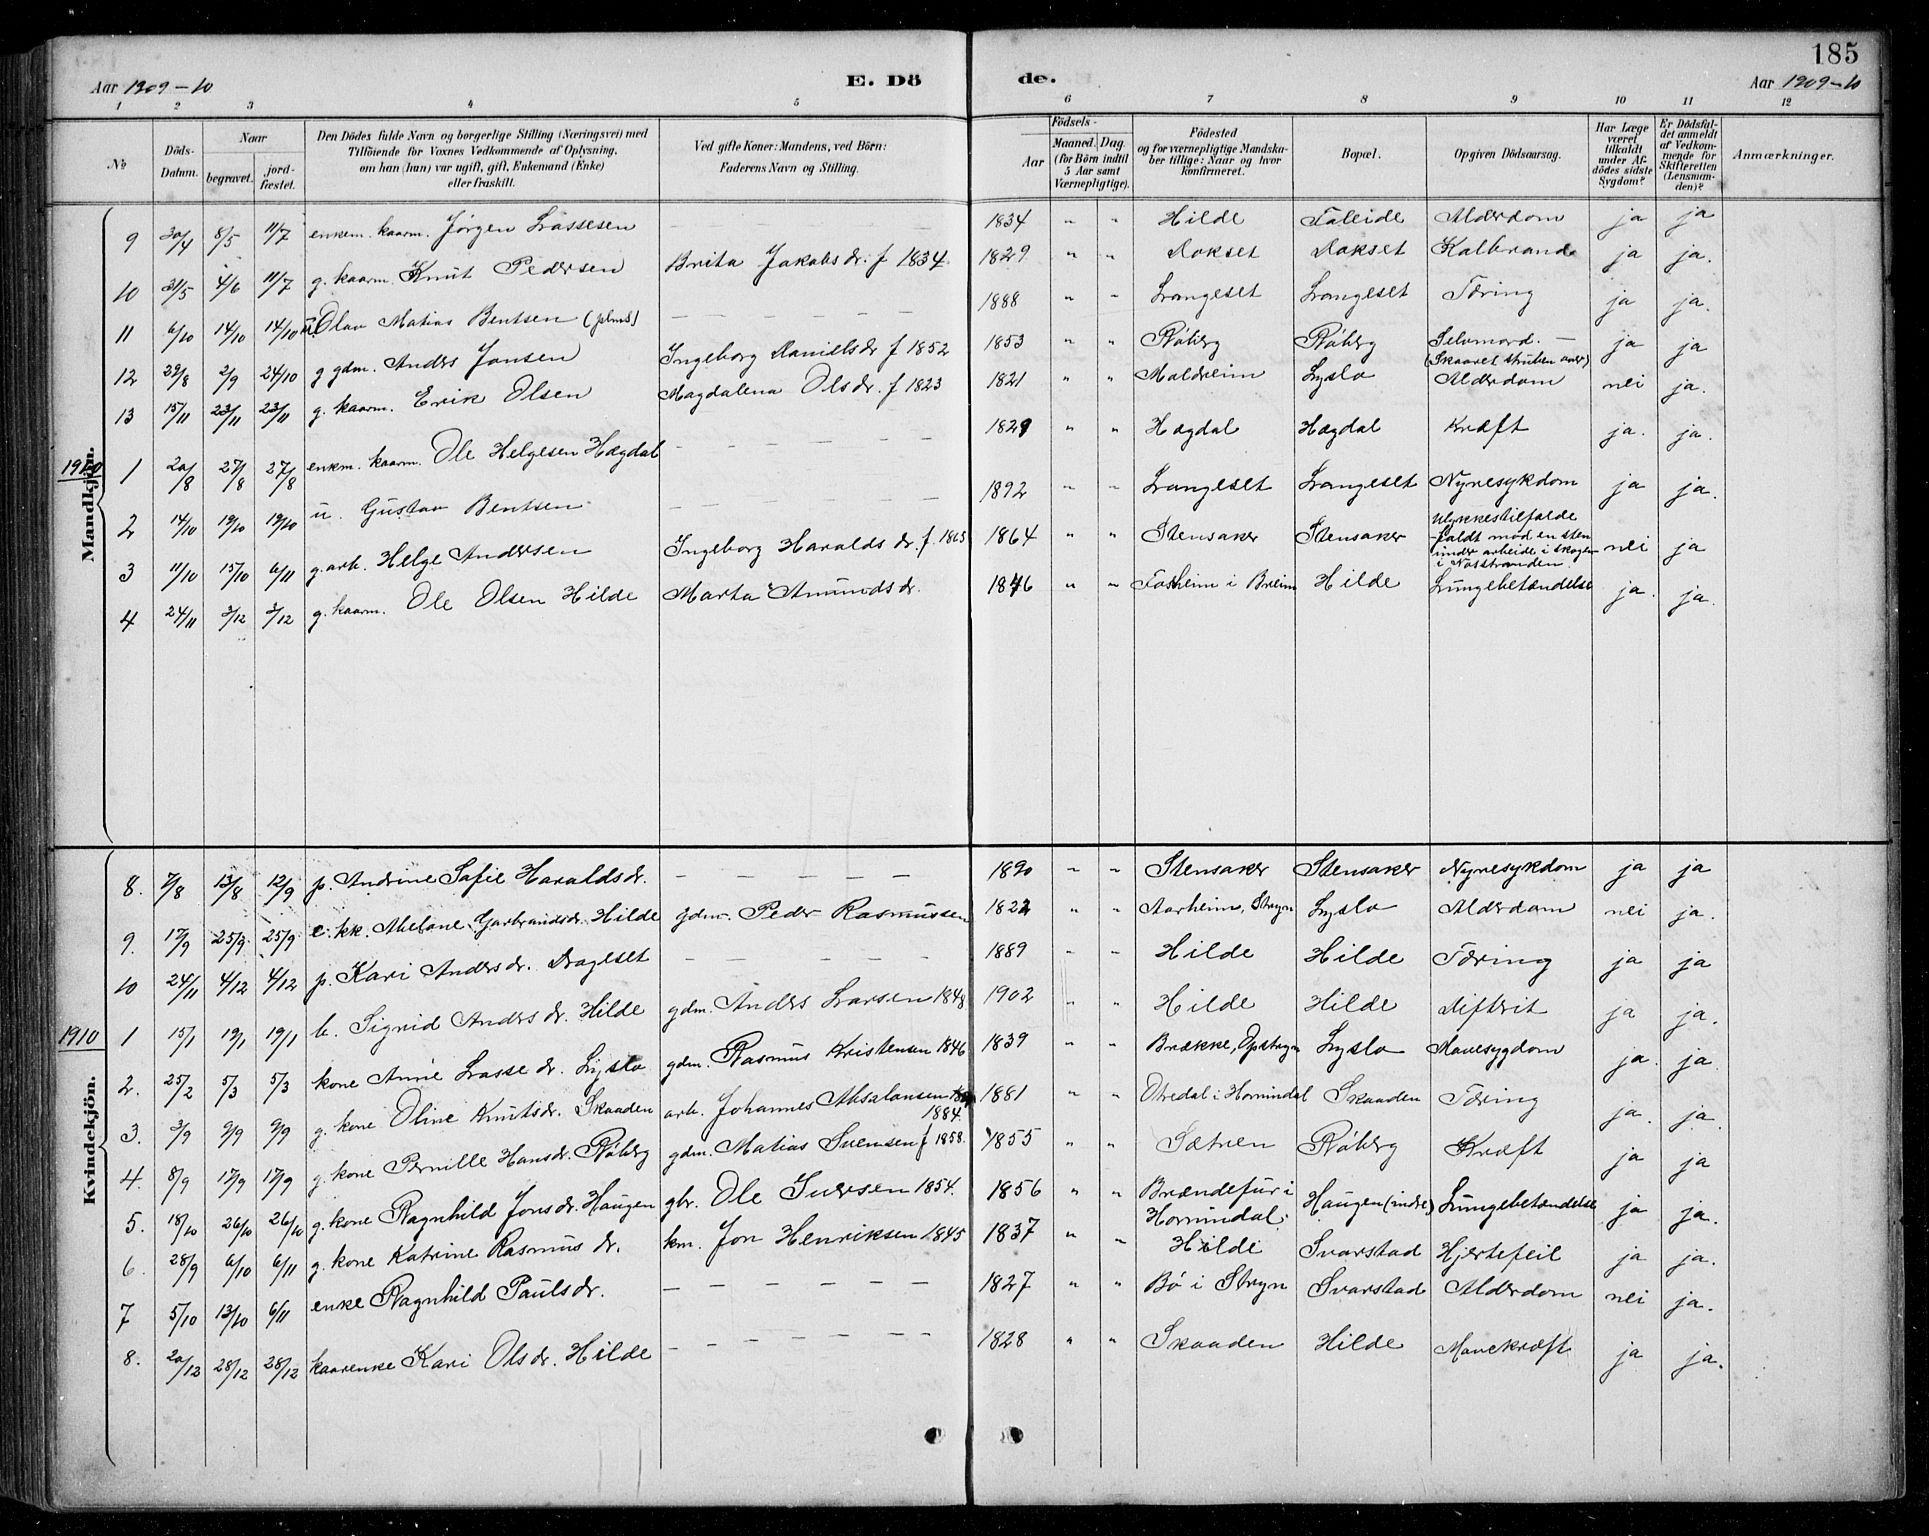 185
Aar 1909-10 E. Dö de. Aar 1909-10
1 2 3 4 5 6 7 8 9 10 11 12
No
Döds-Datum.
Naar
begravet.
jord-fæstet.
Den Dödes fulde Navn og borgerlige Stilling (Næringsvei) med
Tilföiende for Voxnes Vedkommende af Oplysning,
om han (hun) var ugift, gift, Enkemand (Enke)
eller fraskilt.
Ved gifte Koner: Mandens, ved Börn:
Faderens Navn og Stilling.
Födsels-
Aar
Maaned. Dag.
(for Börn indtil
5 Aar samt
Værnepligtige).
Födested
og for værnepligtige Mandska-
ber tillige: Naar og hvor
konfirmeret.
Bopæl.
Opgiven Dödsaarsag.
Har Læge
været
tilkaldt
under Af-
dödes sidste
Sygdom?
Er Dödsfal-
det anmeldt
af Vedkom-
mende for
Skifteretten
(Lensman-
den)?
Anmærkninger.
Mandkjön.
9 30/4 8/5 11/7 enkem. kaarm. Jørgen Lassesen — — 1834 " " Hilde Faleide Alderdom ja ja
10 31/5 4/6 11/7 g. kaarm. Knut Pedersen Brita Jakobsdr. f 1834 1829 " " Rokset Rokset Kolbrand ja ja.
11 6/10 14/10 14/10 u. Olav Matias Bentsen (plms) — — — 1888 " " Langeset Langeset Tæring ja ja.
12 29/8 2/9 24/10 g gdm. Anders Jonsen Ingeborg Danielsdr f 1852 1853 " " Røberg Røberg Selvmord. — (Skaaret struben over) ja ja
13 15/11 23/11 23/11 g. kaarm. Erik Olsen Magdalena Olsdr. f 1823 1821 " " Maldreim Lyslo Alderdom nei ja.
1910
1 20/8 27/8 27/8 enkm. kaarm. Ole Helgesen Hægdal — — — 1829 " " Hægdal Hægdal Kræft ja. ja.
2 14/10 19/10 19/10 u. Gustav Bentsen — — — 1892 " " Langeset Langeset Nyresykdom ja ja.
3 11/10 15/10 6/11 g. arb. Helge Andersen Ingeborg Haralds dr. f. 1865 1864 " " Stensaker Stensaker Ulykkestilfælde
-faldt mod en sten
under arbeide i skogen
i Nosstranden nei ja
4 24/11 3/12 3/12 g. kaarm. Ole Olsen Hilde Marta Amundsdr. 1846 " " Fosheim i Breim Hilde Lungebetændelse ja. ja.
Kvindekjön.
8. 7/8 13/8 12/9 p. Andrine Sofie Haraldsdr. — — — 1890 " " Stensaker Stensaker Nyresykdom ja ja
9. 17/9 25/9 25/9 e. kk. Abelone Garbrandsdr. Hilde gdm. Peder Rasmussen 1822 " " Aarheim, Stryn Lyslo Alderdom nei ja.
10 24/11 4/12 4/12 p. Kari Andersdr. Drageset — — — 1889 " " Hilde Hilde Tæring ja ja
1910
1 15/1 19/1 19/1 b. Sigrid Anders dr. Hilde gdm. Anders Larsen 1848 1902 " " Hilde Hilde Difterit ja ja.
2. 25/2 5/3 5/3 kone Anne Lasse dr. Lyslo gdm. Rasmus Kristensen 1846 1839 " " Brække, Opstryn Lyslo Mavesygdom ja. ja.
3. 3/9 9/9 9/9 g. kone Oline Knutsdr. Skaaden arb. Johannes Absalonsen 1884. 1881 " " Otredal i Hornindal Skaaden Tæring ja. ja.
4. 8/9 17/9 17/9 g. kone Pernille Hansdr. Røberg gdm. Matias Svensen f 1858. 1855 " " Sætren Røberg Kræft ja ja
5. 18/10 26/10 26/10 g. kone Ragnhild Jonsdr. Haugen gbr. Ole Iversen 1854. 1856 " " Brændefur i
Hornindal. Haugen (indre) Lungebetændelse ja ja.
6. 28/9 6/10 6/11 g. kone Katrine Rasmus dr. km. Jon Henriksen 1845 1837 " " Hilde Svarstad Hjertefeil ja ja.
7 5/10 13/10 6/11 enke Ragnhild Paulsdr. — — — 1827 " " Bø i Stryn Svarstad Alderdom nei ja.
8. 20/12 28/12 28/12 kaarenke Kari Olsdr. Hilde — — — 1828 " " Skaaden Hilde Mavekræft ja ja.